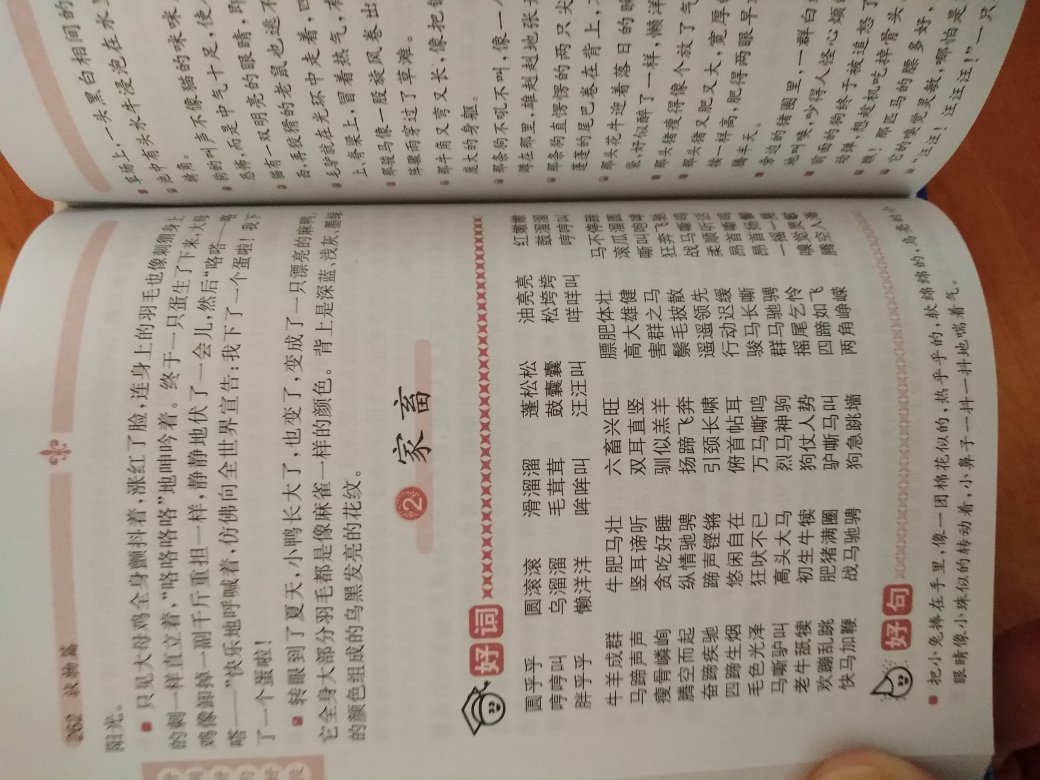 262 状物篇
阳光。
只见大母鸡全身颤抖着,涨红了脸,连身上的羽毛也像刺猬身上
的刺一样直立着,“咯咯咯咯”地呻吟着。终于一只蛋生了下来,大母
鸡像卸掉一副千斤重担一样,静静地伏了一会儿,然后“咯咯——嗒
嗒——”快乐地呼喊着,仿佛向全世界宣告:我下了一个蛋啦!我下
了一个蛋啦!
转眼到了夏天,小鸭长大了,也变了,变成了一只漂亮的麻鸭。
它全身大部分羽毛都是像麻雀一样的颜色。背上是深蓝、浅灰、墨绿
的颜色组成的乌黑发亮的花纹。
2 家畜
好词
圆乎乎 圆滚滚 滑溜溜 蓬松松 油亮亮
哼哼叫 乌溜溜 毛茸茸 鼓囊囊 松垮垮 鼓溜溜
胖乎乎 懒洋洋 哞哞叫 汪汪叫 咩咩叫 哼哼叫
牛羊成群 牛肥马壮 六畜兴旺 膘肥体壮 马不停蹄
马蹄声声 竖耳谛听 双耳直竖 高大雄健 滚瓜溜圆
瘦骨嶙峋 贪吃好睡 驯似羔羊 害群之马 嘶叫咆哮
腾空而起 纵情驰骋 扬蹄飞奔 鬃毛披散 狂奔飞驰
奋蹄疾驰 蹄声铿锵 引颈长啸 遥遥领先 战马嘶鸣
四蹄生烟 悠闲自在 俯首帖耳 行动迟缓 柔顺听话
毛色光泽 狂吠不已 万马嘶鸣 骏马长嘶 昂首嘶鸣
马嘶驴叫 高头大马 烈马神驹 群马驰骋
老牛舐犊 初生牛犊 狗仗人势 摇尾乞怜
欢蹦乱跳 肥猪满圈 驴嘶马叫 四蹄如飞 嗅觉灵敏
快马加鞭 战马驰骋 狗急跳墙 两角峥嵘
好句
把小兔捧在手里,像一团棉花似的,热乎乎的,软绵绵的,乌亮的
眼睛像小珠似的转动着,小鼻子一抖一抖地喘着气。
草场上,一头黑白相间的
池中有头水牛浸泡在水
猪狗的叫声不像猫的咪咪
恐怖,而是中气十足,使
猫有一双明亮的眼睛,即
面再狡猾的老鼠也逃不
毛身就在光环中走着,四
上、脊梁上,冒着热气,
那骏马像一股旋风卷出
阵骤雨穿过了草滩。
那牛角又弯又长,像把
庞大的身躯。
那条狗不吼不叫,像一
蹲在那里,雄赳赳地张
那条狗直愣愣的两只尖
蓬蓬的尾巴卷在背上,
那头花牛迎着落日的
象,好似醉了一样,懒洋
那头猪瘦得像个放了气
那头猪又肥又大,宽厚
接一样高,肥得两眼早
腾半天。
旁边的猪圈里,一群白
地叫唤,吵得人怪心烦
前面的狗终于被追怒了
动弹,想趁机吃掉骨头
瞧!那匹马的膘多好,
它的嗅觉灵敏,哪怕是
“汪汪!汪汪汪!”一只